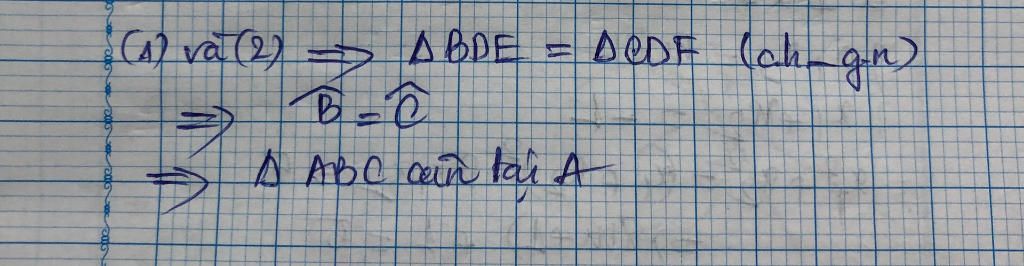 (1) và (2) ⇒ Δ BDE = Δ CDF (ch_gn)
⇒ B̂ = Ĉ
⇒ Δ ABC cân tại A